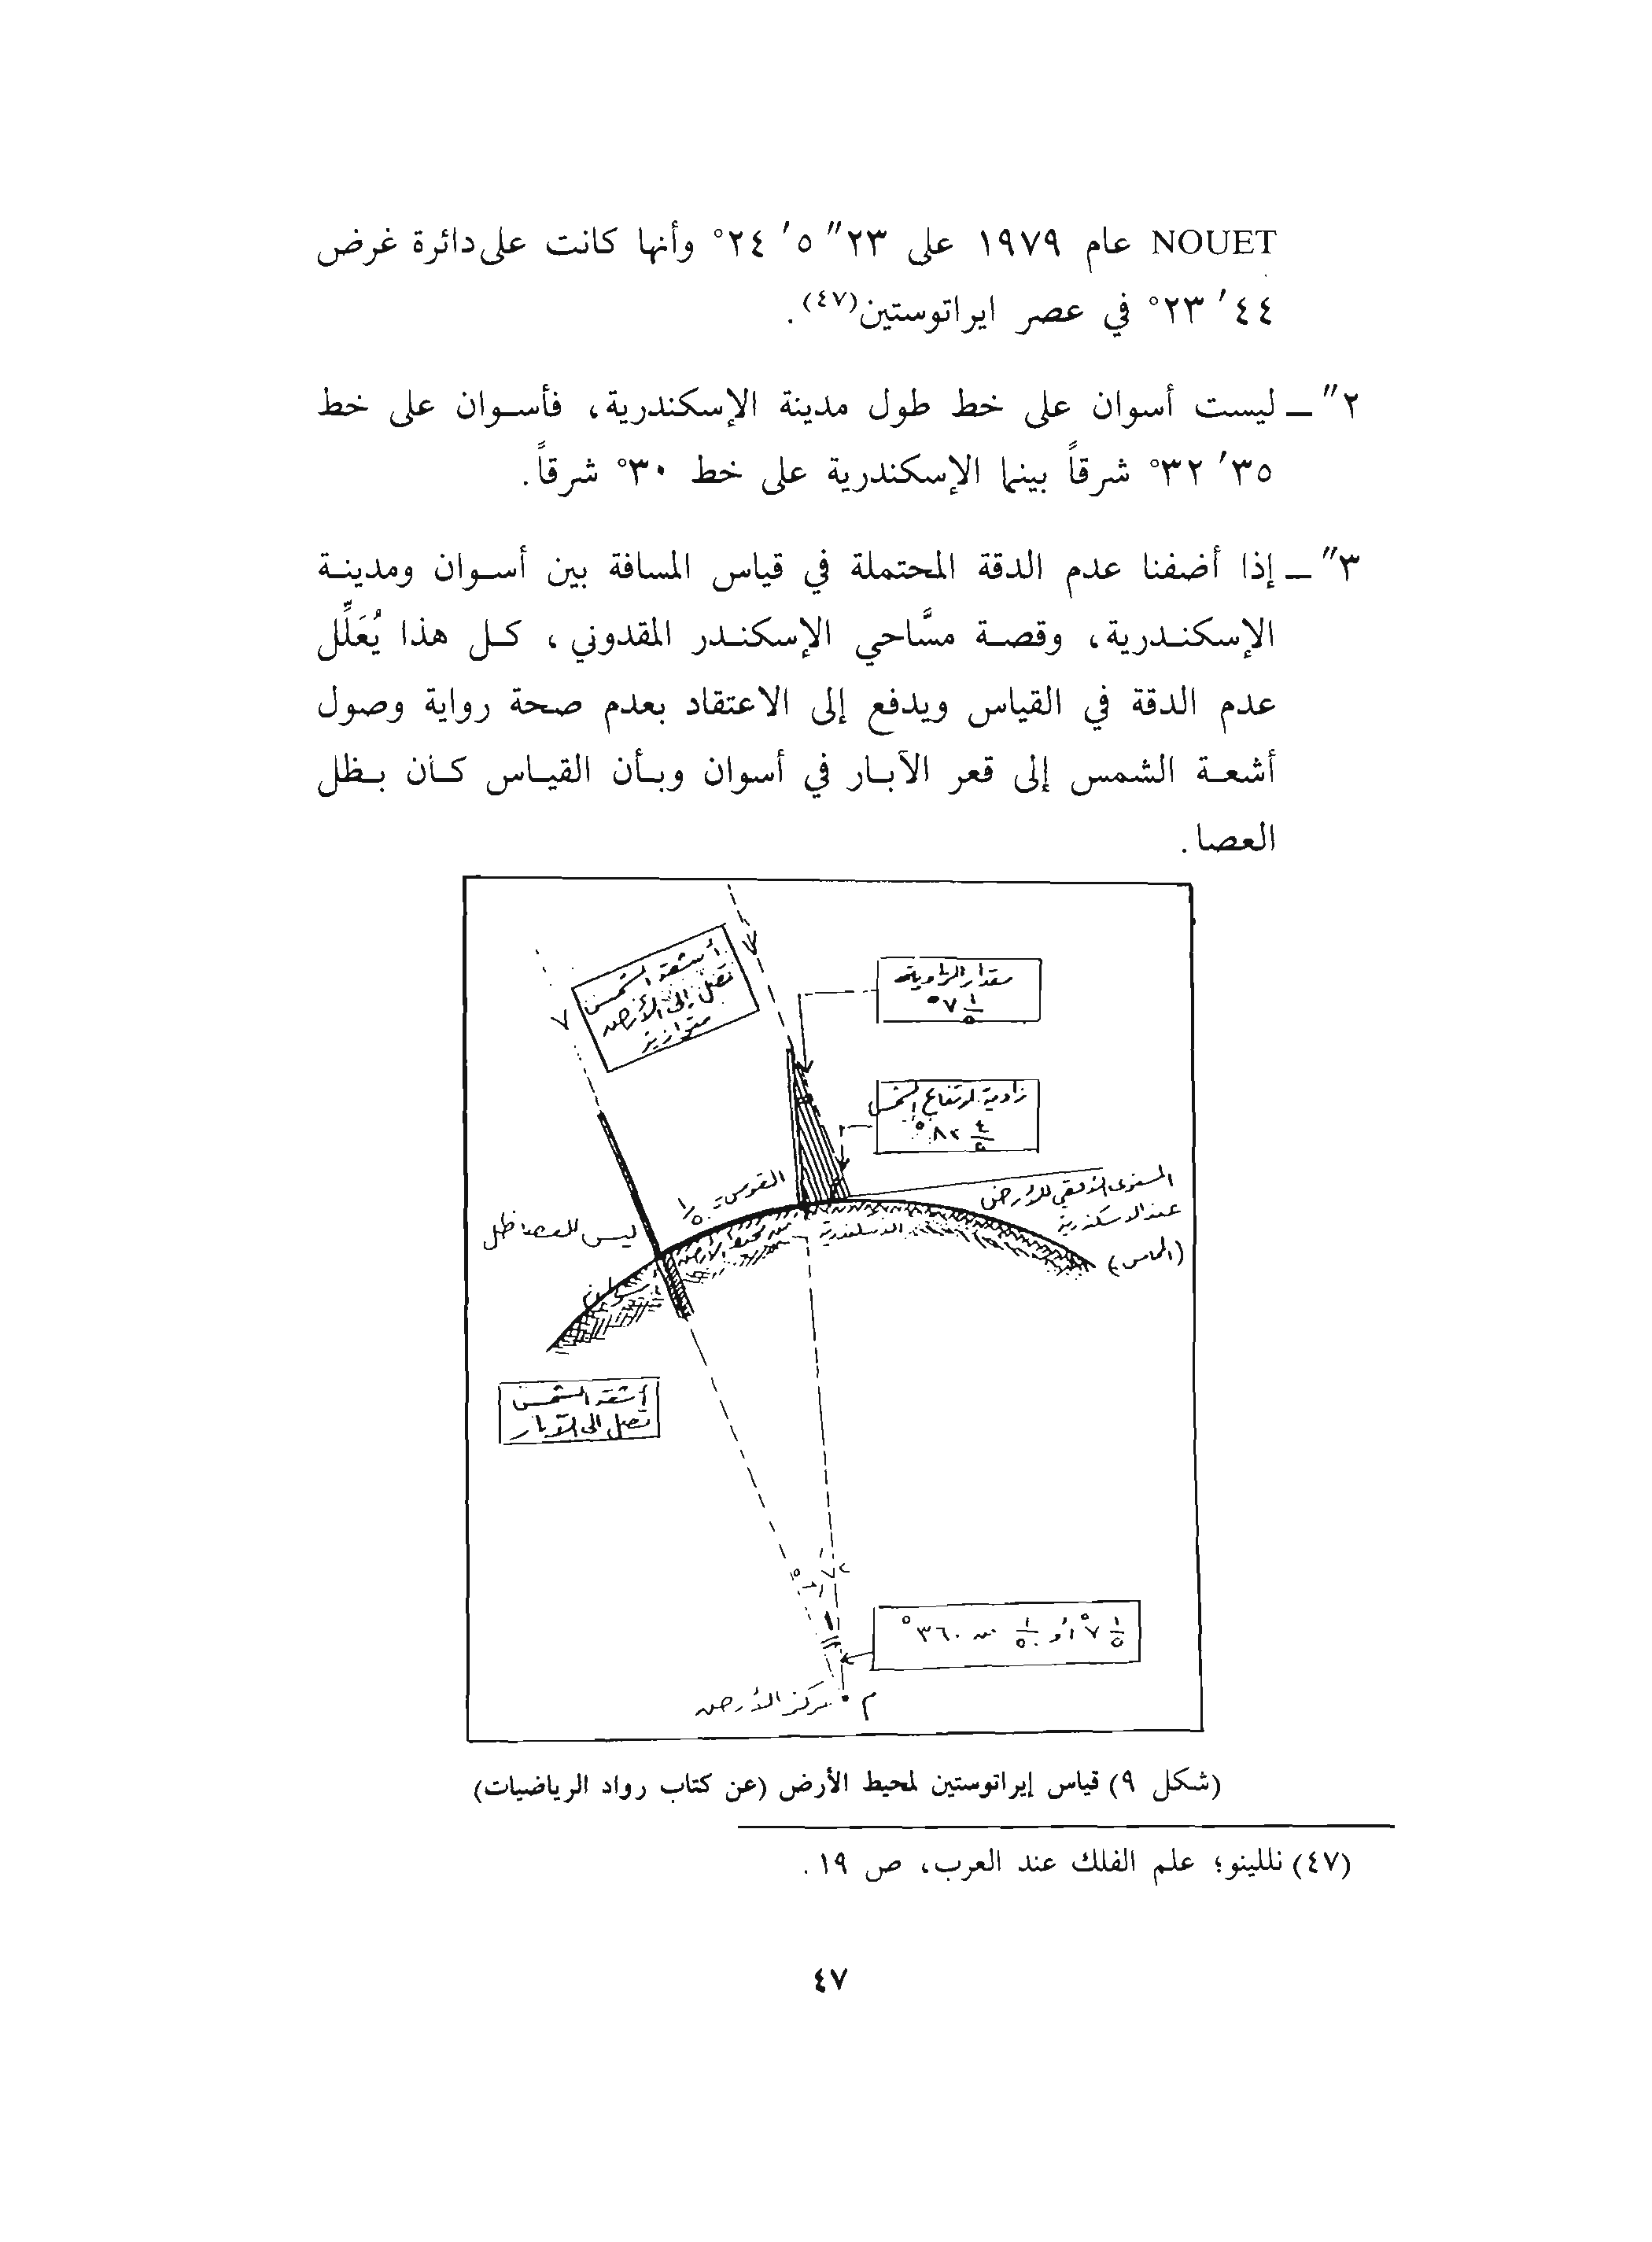 NOUET عام ١٩٧٩ على ٢٣″ ٥′ ٢٤° وأنها كانت على دائرة غرض
٤٤′ ٢٣° في عصر ايراتوستين(٤٧).
٢″ ــ ليست أسوان على خط طول مدينة الإسكندرية، فأسوان على خط
٣٥′ ٣٢° شرقاً بينما الإسكندرية على خط ٣٠° شرقاً.
٣″ ــ إذا أضفنا عدم الدقة المحتملة في قياس المسافة بين أسوان ومدينة
الإسكندرية، وقصة مسَّاحي الإسكندر المقدوني، كل هذا يُعَلِّل
عدم الدقة في القياس ويدفع إلى الاعتقاد بعدم صحة رواية وصول
أشعة الشمس إلى قعر الآبار في أسوان وبأن القياس كان بظل
العصا.
أشعة الشمس
تصل إلى الأرض
متوازية
مقدار الزاوية
٧ ١/٥°
زاوية ارتفاع الشمس
٨٢ ٤/٥°
القوس = ١/٥٠
من محيط الأرض
المستوى الأفقي للأرض
عند الاسكندرية
(المماس)
ليس للعصا ظل
الاسكندرية
أسوان
أشعة الشمس
تصل إلى الآبار
٧ ١/٥° أو ١/٥٠ من ٣٦٠°
م مركز الأرض
(شكل ٩) قياس إيراتوستين لمحيط الأرض (عن كتاب رواد الرياضيات)
(٤٧) نللينو؛ علم الفلك عند العرب، ص ١٩.
٤٧